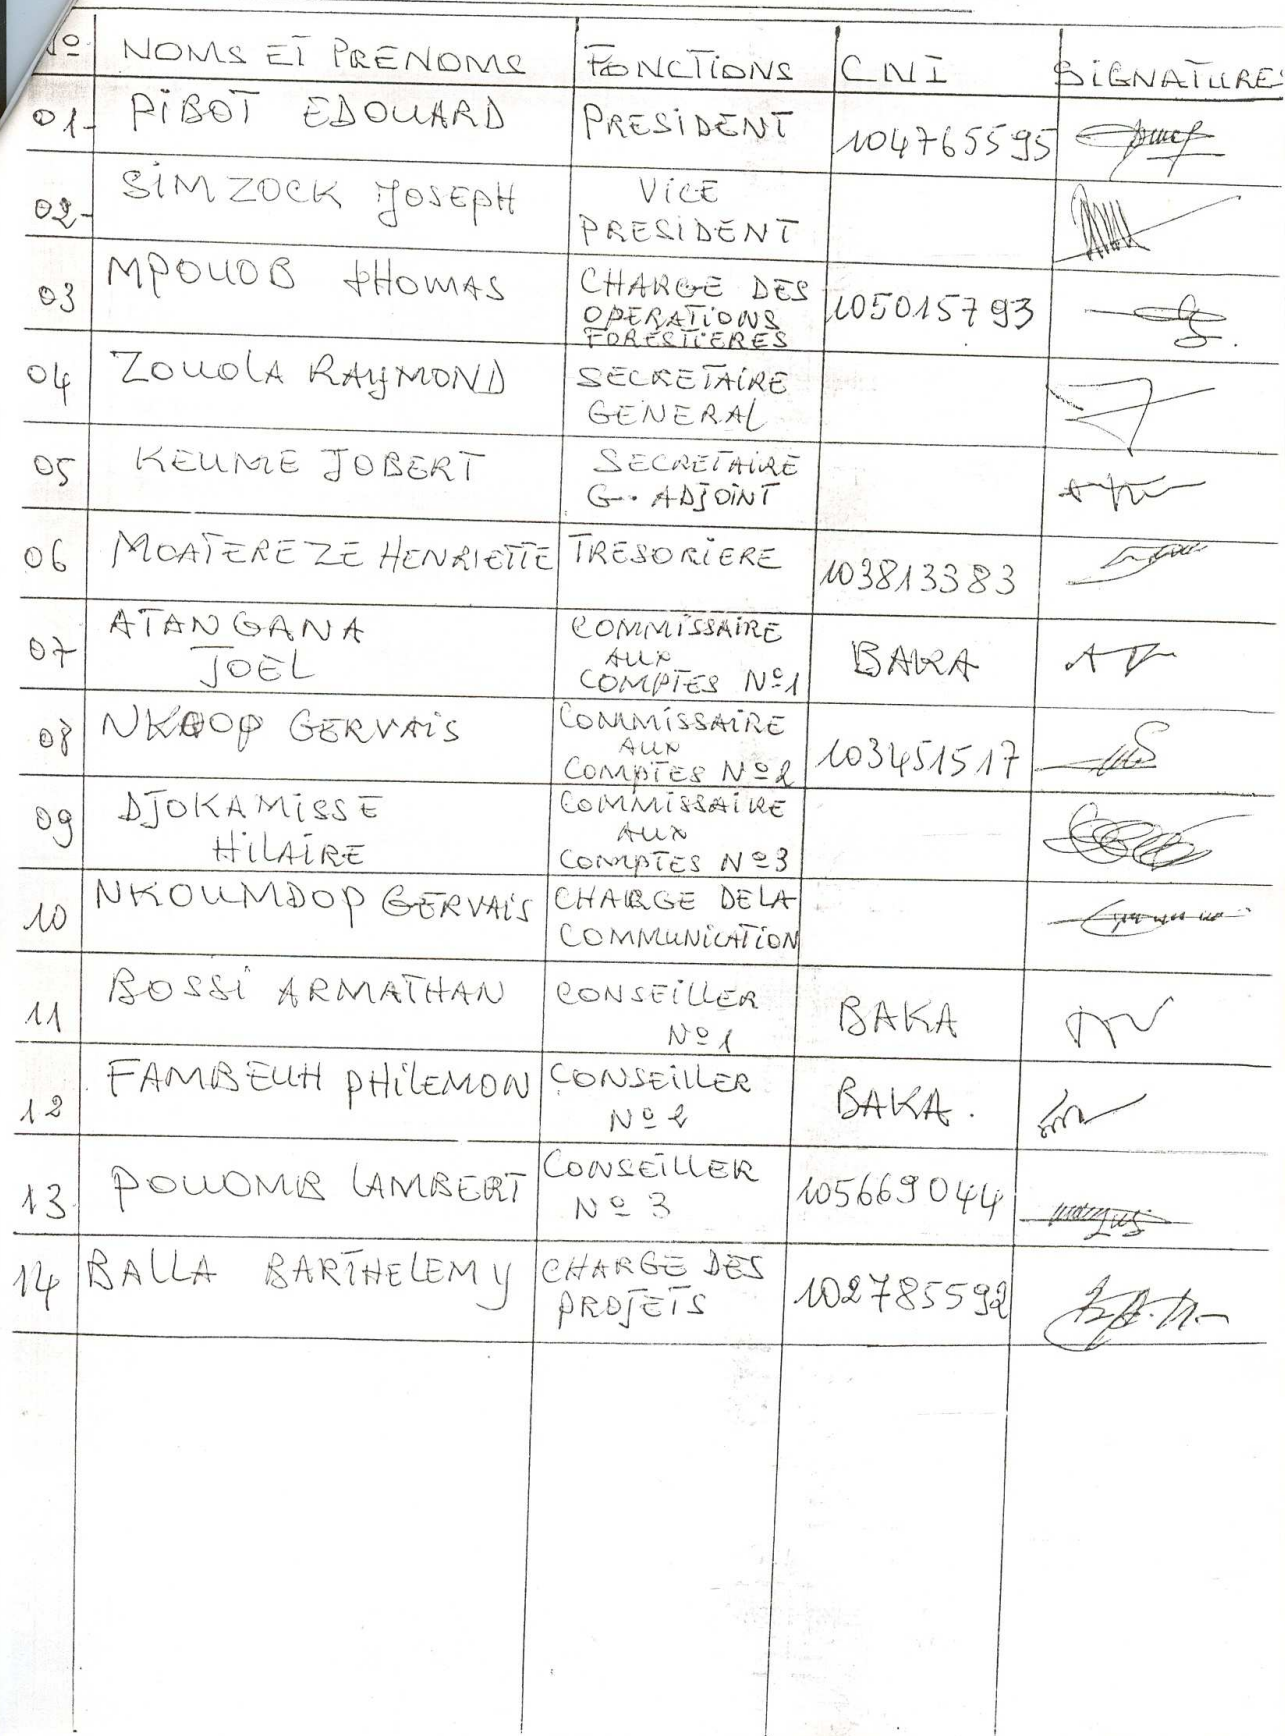 N° NOMS ET PRENOMS FONCTIONS CNI SIGNATURES
01- PIBOT EDOUARD PRESIDENT 104765595
02- SIMZOCK JOSEPH VICE
PRESIDENT
03 MPOUOB THOMAS CHARGE DES
OPERATIONS
FORESTIERES 105015793
04 ZOUOLA RAYMOND SECRETAIRE
GENERAL
05 KEUME JOBERT SECRETAIRE
G. ADJOINT
06 MOATEREZE HENRIETTE TRESORIERE 103813383
07 ATANGANA
JOEL COMMISSAIRE
AUX
COMPTES N°1 BAKA
08 NKOOP GERVAIS COMMISSAIRE
AUX
COMPTES N°2 103451517
09 DJOKAMISSE
HILAIRE COMMISSAIRE
AUX
COMPTES N°3
10 NKOUMDOP GERVAIS CHARGE DE LA
COMMUNICATION
11 BOSSI ARMATHAN CONSEILLER
N°1 BAKA
12 FAMBEUH PHILEMON CONSEILLER
N°2 BAKA.
13 POUOMB LAMBERT CONSEILLER
N°3 105669044
14 BALLA BARTHELEMY CHARGE DES
PROJETS 102785592